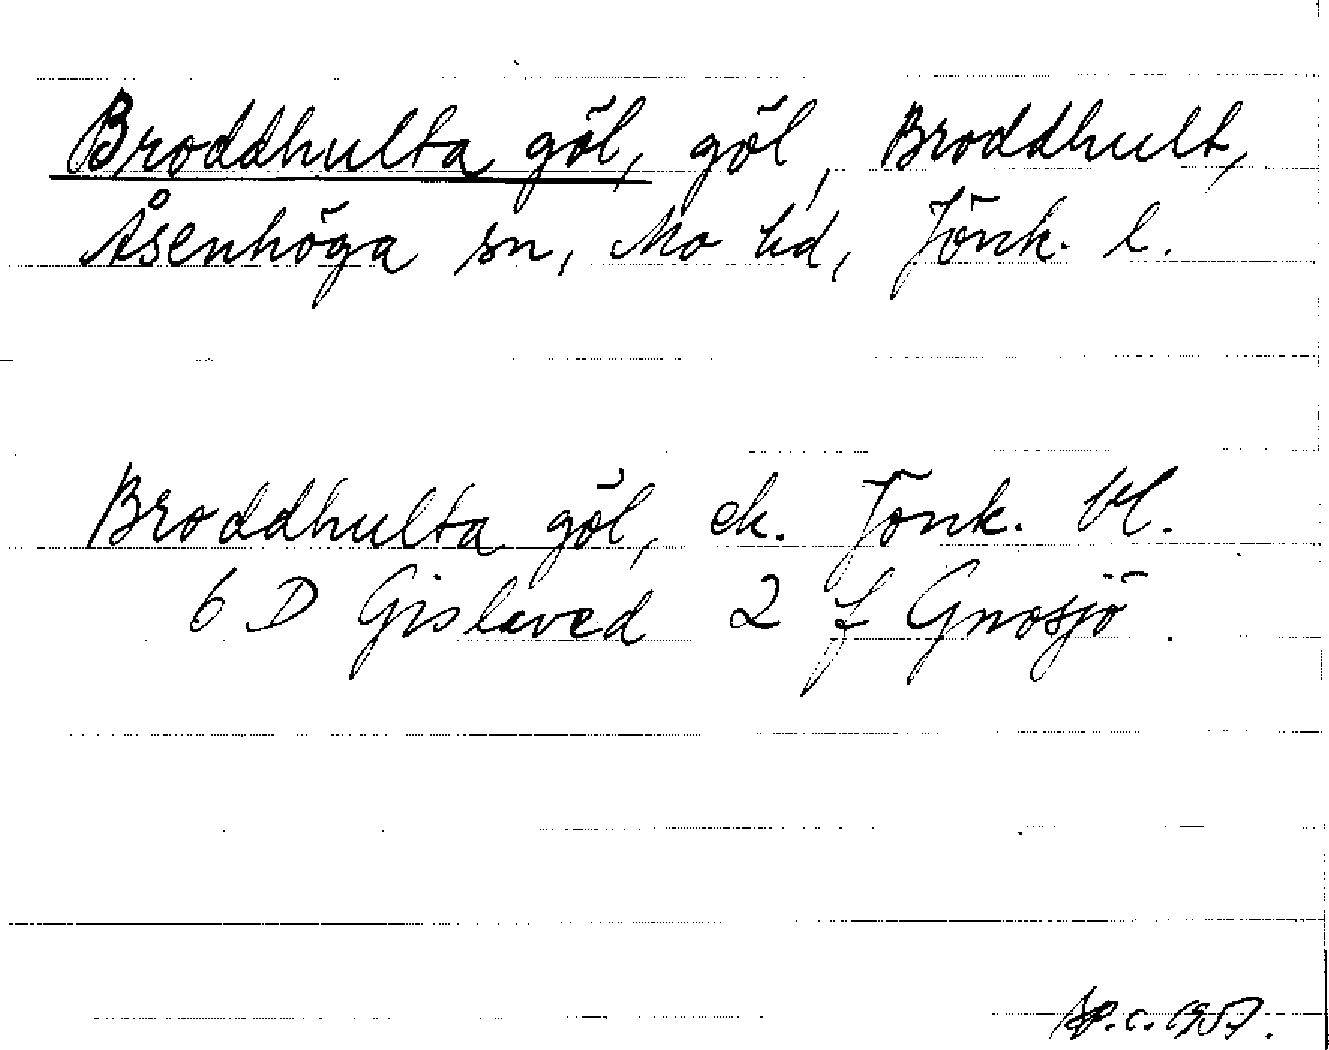 Broddhulta göl, göl, Broddhult,
Åsenhöga sn, Mo hd, Jönk. l.
Broddhulta göl, ek. Jönk. bl.
6 D Gislaved 2 f Gnosjö.
c. 1957.